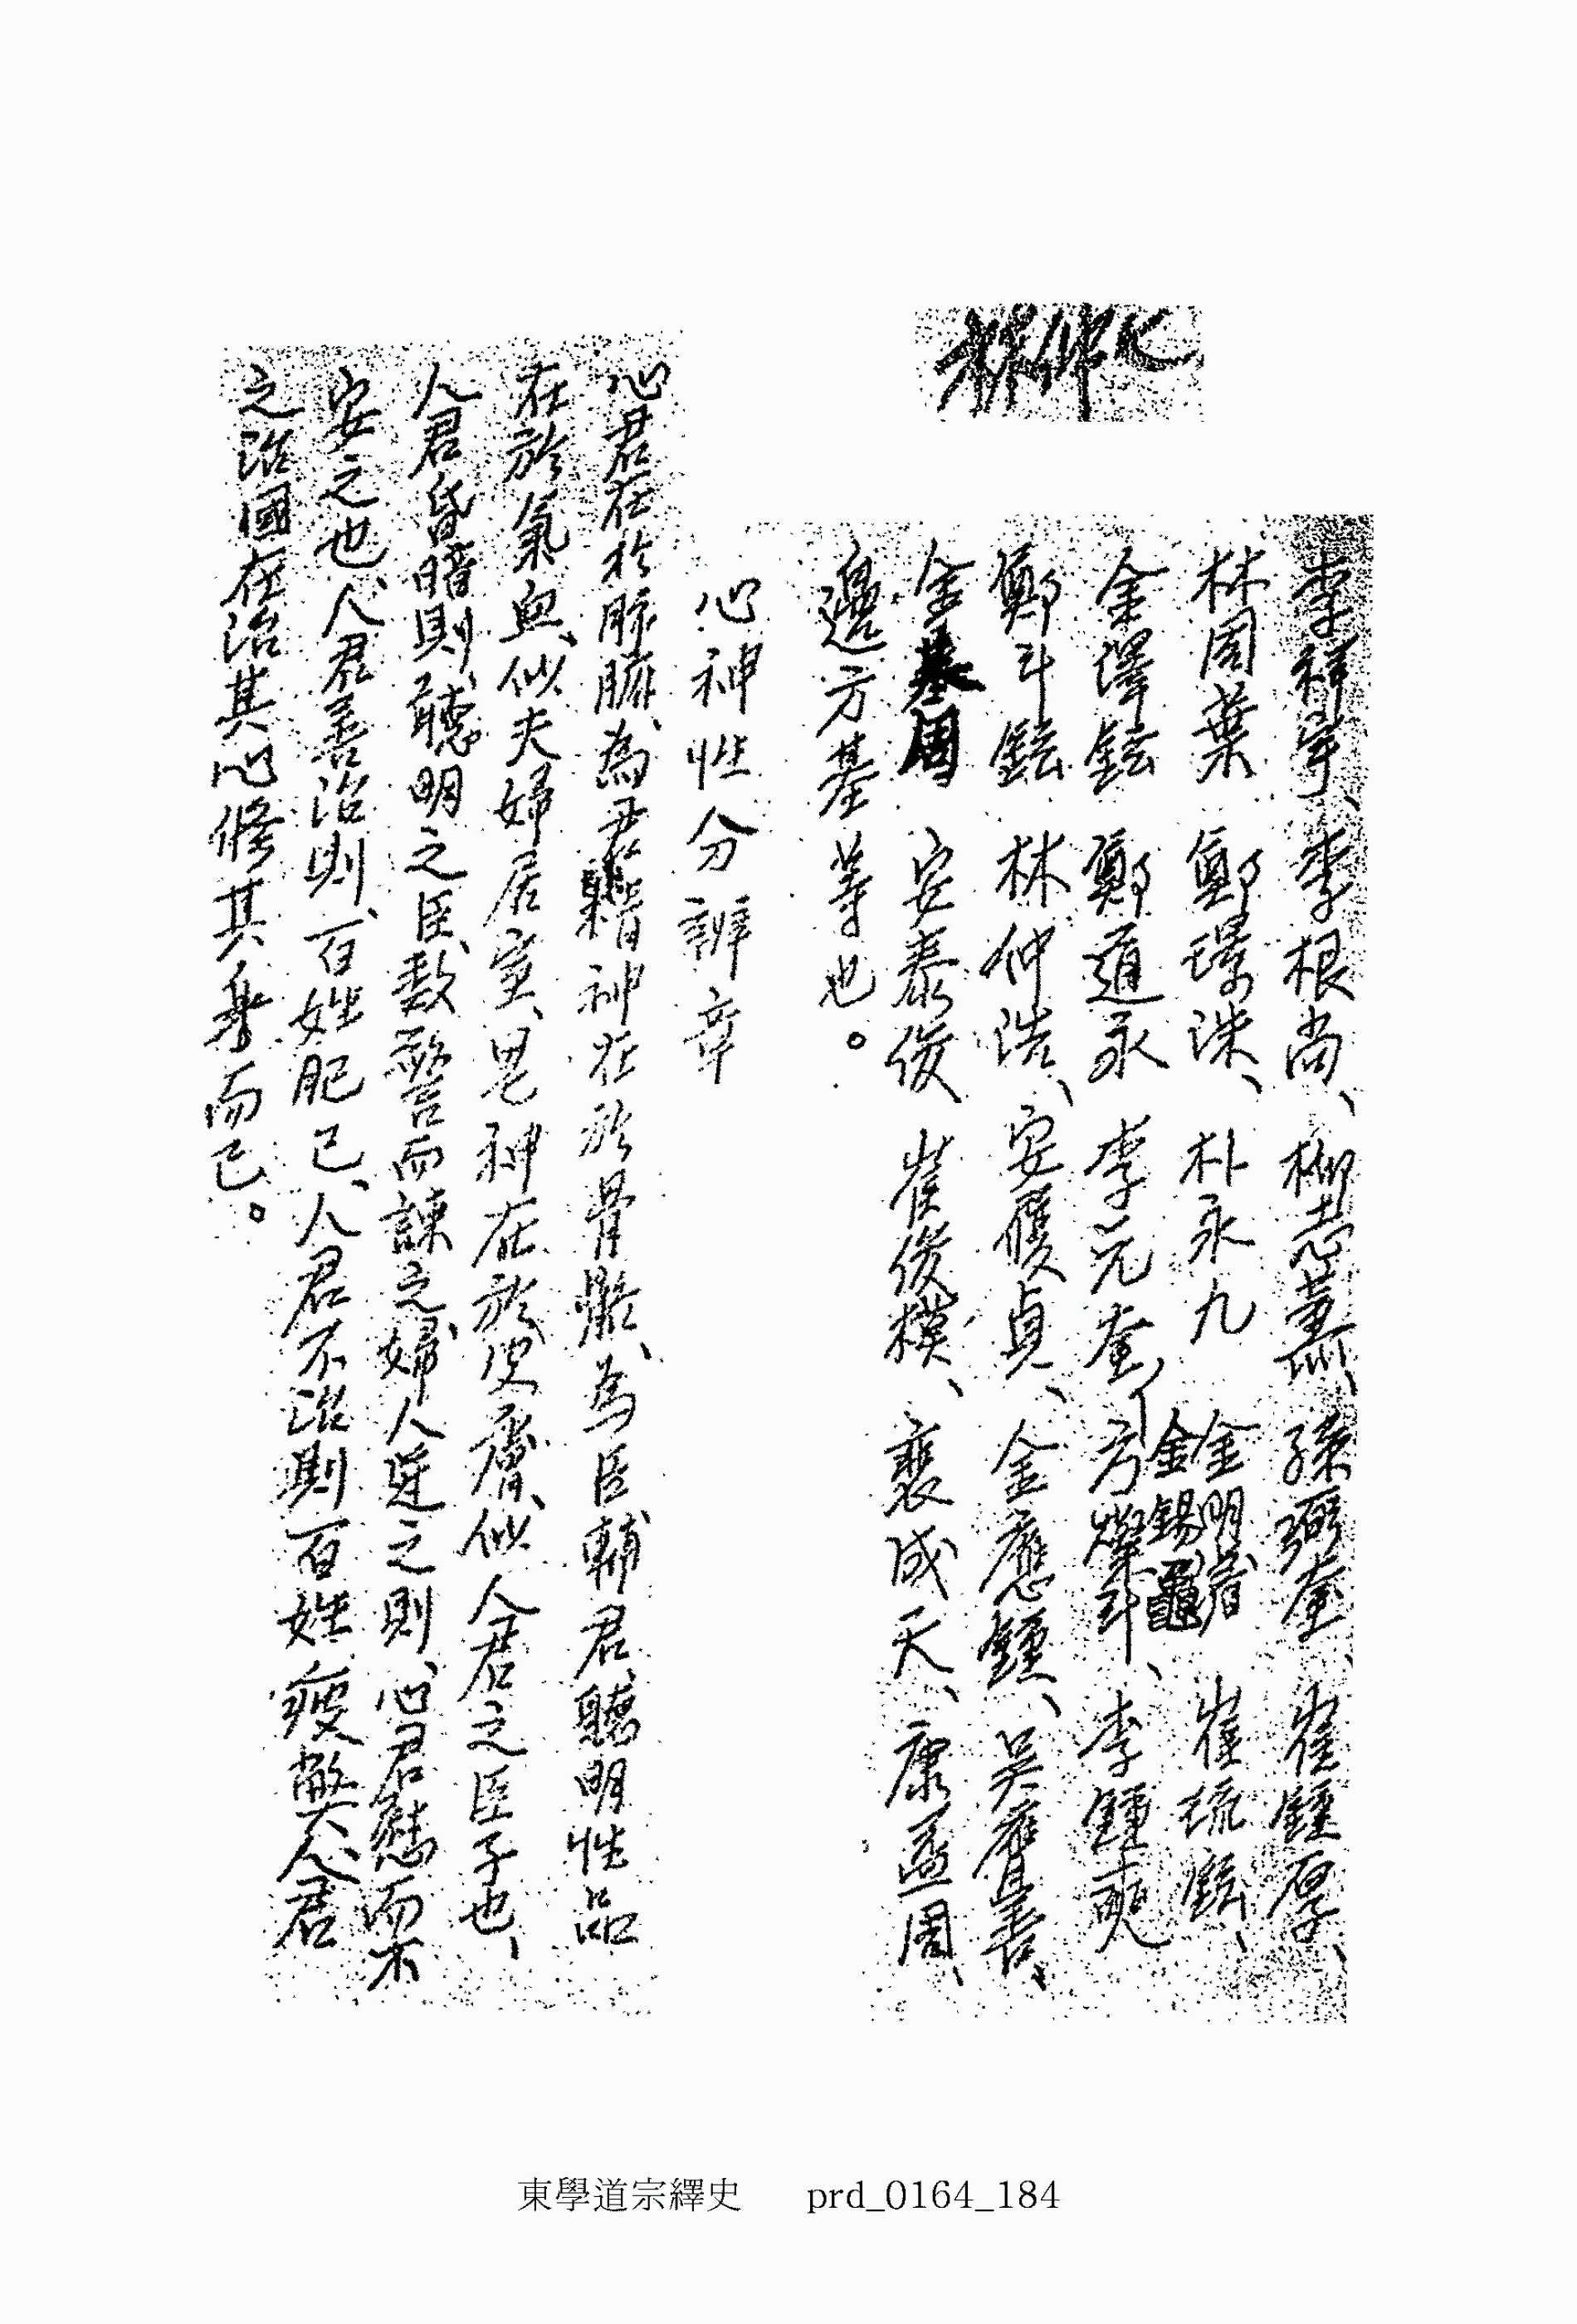 林仲化
李祥宇、李根尚、柳志薰、孫弼奎、崔鍾厚、
林周葉 鄭璟洙、朴永九 金明善 崔琉鉉、
金錫龜
金澤鉉 鄭道永 李元奎、方燦斗、李鍾奭
鄭斗鉉 林仲浩、安履貞、金應鍾、吳膺善、
金基周 安泰俊 崔俊模、裵成天、康盈周、
邊方基等也。
心神性分辨章
心君在於脈臟、為君、精神在於骨骸、為臣輔君聰明性品
在於氣血、似夫婦居室、鬼神在於皮膚、似人君之臣子也、
人君昏暗則、聰明之臣、数警而諫之、婦人逆之則、心君愁而不
安之也、人君善治則、百姓肥已、人君不治則百姓疲弊、人君
之治國在治其心修其身而已。
東學道宗繹史 prd_0164_184